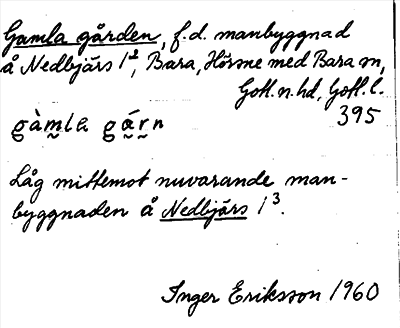 Gamla gården, f.d. manbyggnad
å Nedbjärs 1², Bara, Hörsne med Bara sn,
Gotl. n. hd, Gotl. l.
395
gàm̭la gá̭r̭n
Låg mittemot nuvarande man-
byggnaden å Nedbjärs 1³.
Inger Eriksson 1960